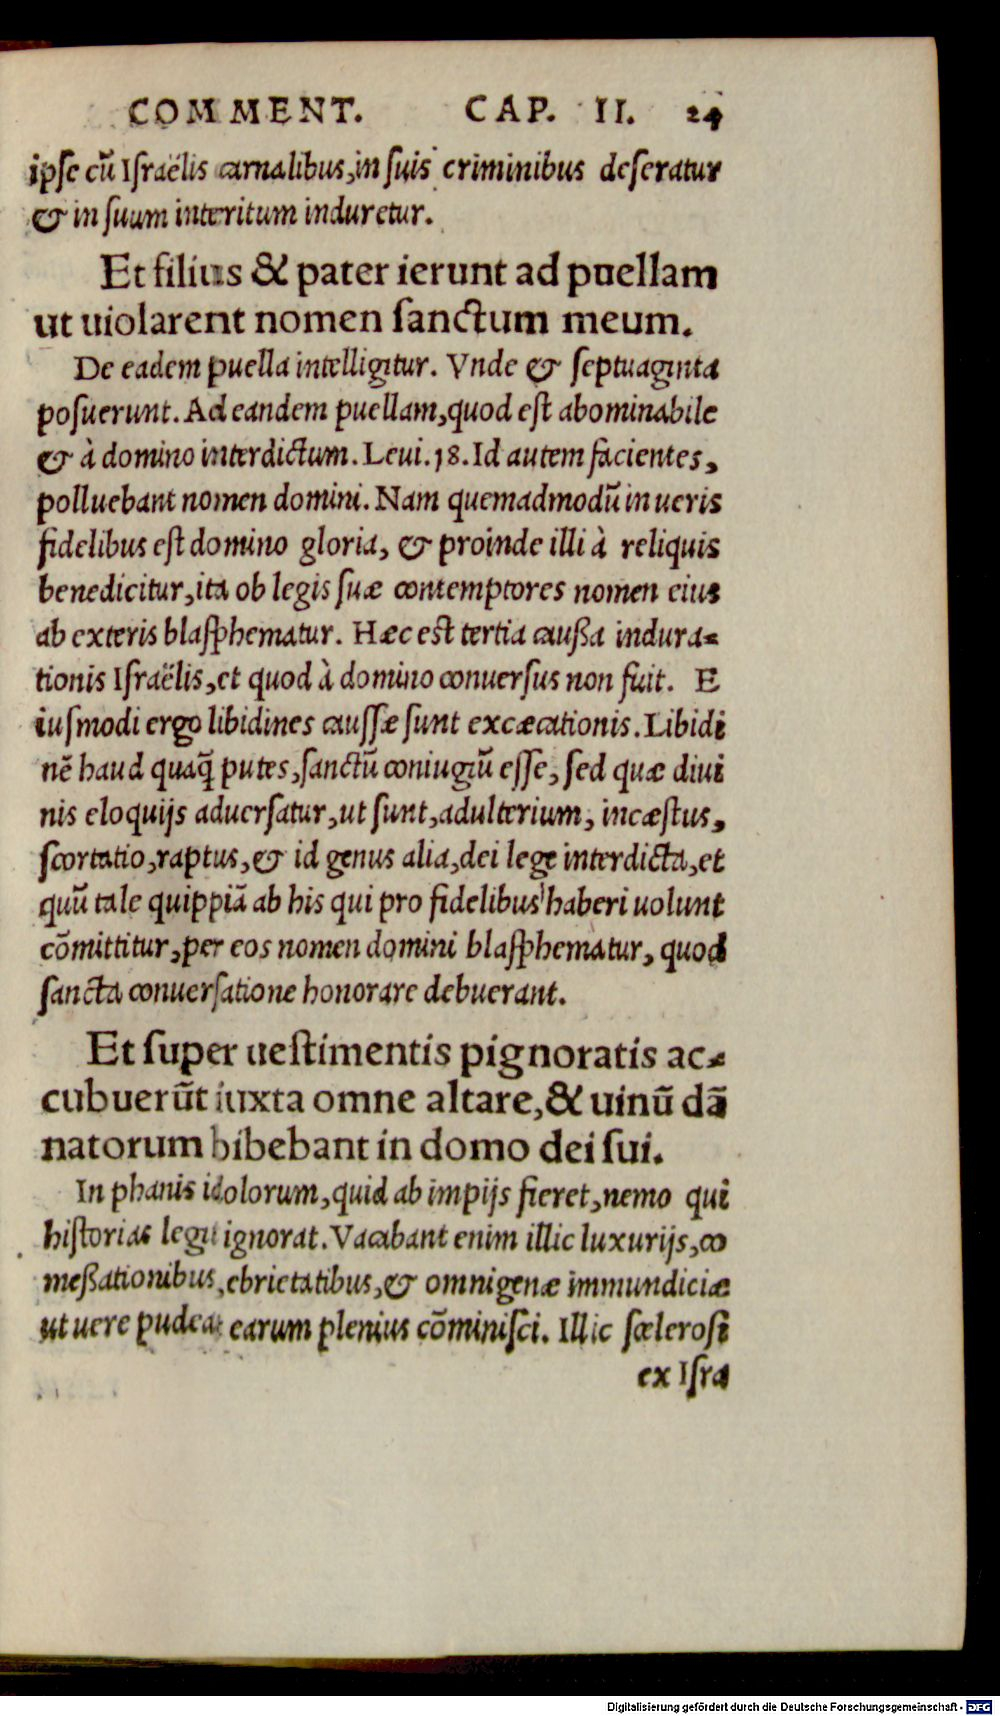 COMMENT. CAP. II. 24
ipſe cũ Iſraëlis carnalibus, in ſuis criminibus deſeratur
& in ſuum interitum induretur.
Et filius & pater ierunt ad puellam
ut uiolarent nomen ſanctum meum.
De eadem puella intelligitur. Vnde & ſeptuaginta
poſuerunt. Ad eandem puellam, quod eſt abominabile
& à domino interdictum. Leui. 18. Id autem facientes,
polluebant nomen domini. Nam quemadmodũ in ueris
fidelibus eſt domino gloria, & proinde illi à reliquis
benedicitur, ita ob legis ſuæ contemptores nomen eius
ab exteris blaſphematur. Hæc eſt tertia cauſſa indura-
tionis Iſraëlis, et quod à domino conuerſus non fuit. E
iuſmodi ergo libidines cauſſæ ſunt excæcationis. Libidi
nẽ haud quaq̃ putes, ſanctũ coniugiũ eſſe, ſed quæ diui
nis eloquijs aduerſatur, ut ſunt, adulterium, incæſtus,
ſcortatio, raptus, & id genus alia, dei lege interdicta, et
quũ tale quippiã ab his qui pro fidelibus haberi uolunt
cõmittitur, per eos nomen domini blaſphematur, quod
ſancta conuerſatione honorare debuerant.
Et ſuper ueſtimentis pignoratis ac-
cubuerũt iuxta omne altare, & uinũ dã
natorum bibebant in domo dei ſui.
In phanis idolorum, quid ab impijs fieret, nemo qui
hiſtorias legit ignorat. Vacabant enim illic luxurijs, co
meſſationibus, ebrietatibus, & omnigenæ immundiciæ
ut uere pudeat earum plenius cõminiſci. Illic ſceleroſi
ex Iſra
Digitalisierung gefördert durch die Deutsche Forschungsgemeinschaft - DFG